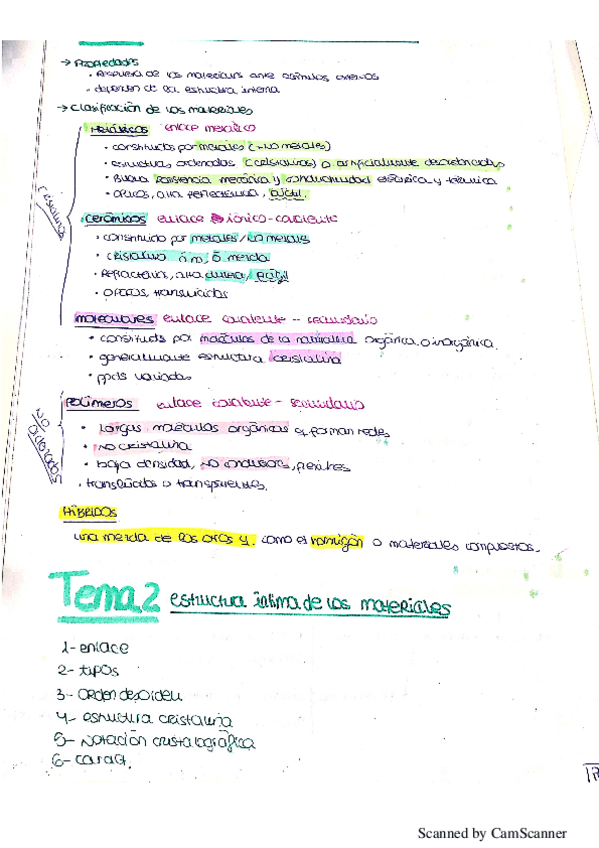 → PROPIEDADES
• Respuesta de los materiales ante estímulos externos
• dependen de la estructura interna
→ Clasificación de los materiales
METÁLICOS enlace metálico
• constituidos por metales (+ no metales)
• estructuras ordenadas (cristalinas) o artificialmente desordenadas
• Buena resistencia mecánica y conductividad eléctrica y térmica
• opacos, alta, dúctil.
CRISTALINOS
CERÁMICOS enlace iónico-covalente
• constituido por metales/no metales
• cristalina ó mezcla
• Refractarios, alta dureza/frágil
• opacos, translúcidos
moleculares enlace covalente - secundario
• constituido por moléculas de la naturaleza orgánica o inorgánica.
• generalmente estructura cristalina
• ppds variadas
POLÍMEROS enlace covalente - secundario
NO ORDENADOS
• Largas moléculas orgánicas q forman redes
• No cristalina
• baja densidad, no conductores,
• translúcidos o transparentes.
HÍBRIDOS
una mezcla de los otros y. como el hormigón o materiales compuestos.
Tema 2 estructura íntima de los materiales
1- enlace
2- tipos
3- orden desorden
4- estructura cristalina
5- Notación cristalográfica
6- caract.
Scanned by CamScanner